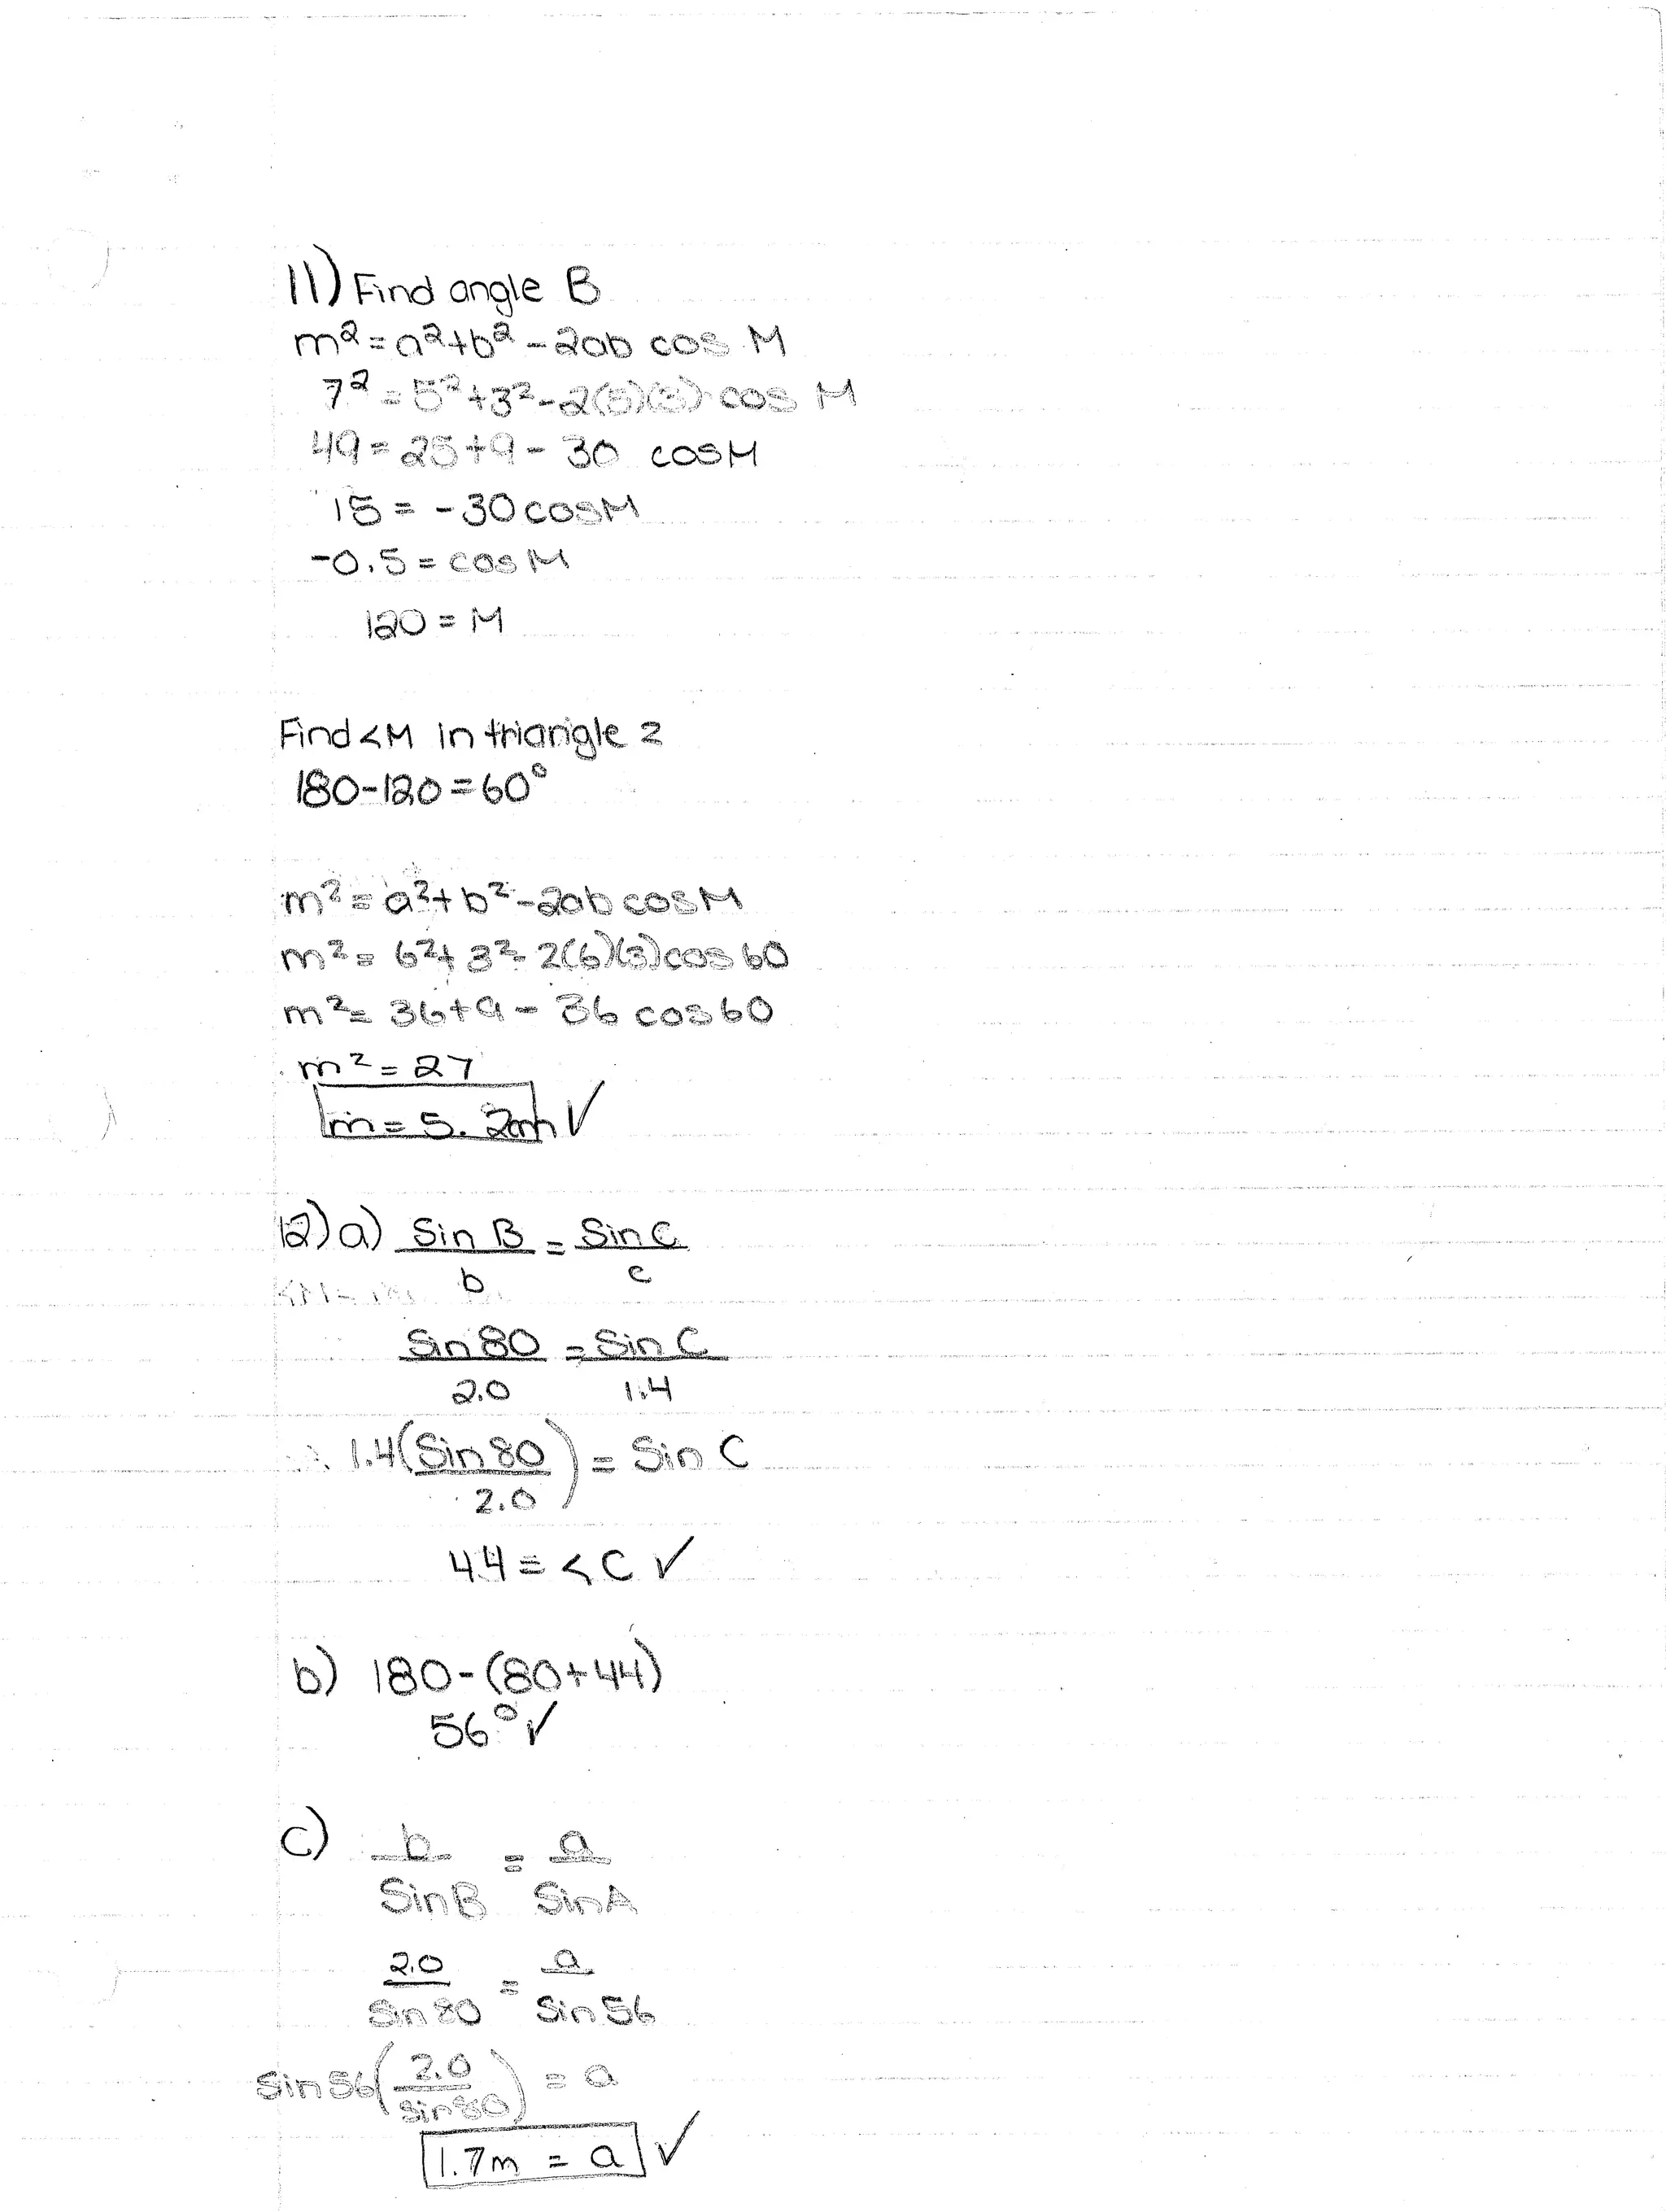 11) Find angle B
m² = a² + b² - 2ab cos M
7² = 5² + 3² - 2(5)(3) cos M
49 = 25 + 9 - 30 cos M
15 = -30 cos M
-0.5 = cos M
120 = M
Find <M in triangle 2
180-120 = 60°
m² = a² + b² - 2ab cos M
m² = 6² + 3² - 2(6)(3) cos 60
m² = 36 + 9 - 36 cos 60
m² = 27
m = 5.2cm ✓
12) a) Sin B = Sin C
b c
Sin 80 = Sin C
2.0 1.4
1.4(Sin 80) = Sin C
2.0
44 = <C ✓
b) 180-(80+44)
56° ✓
c) b = a
Sin B Sin A
2.0 = a
Sin 80 Sin 56
Sin 56(2.0) = a
sin 80
1.7m = a ✓